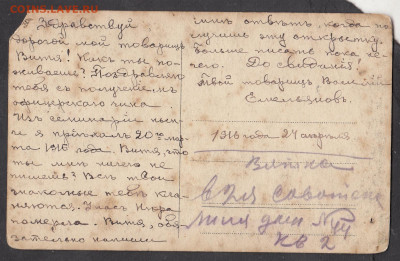 Здравствуй
дорогой мой товарищъ
Витя! Какъ ты по-
живаешь? Поздравляю
тебя съ полученiемъ
офицерскаго чина
Изъ семинарiи
я прiѣхалъ 20го мар-
та 1916 года. Витя, что
ты мнѣ ничего не
пишешь? Всѣ твои
знакомые тебѣ кла-
няются. У насъ
померла. Витя, обя-
зательно напиши
отвѣтъ, когда по-
лучишь эту открытку.
Больше писать пока не-
чего. До свиданiя!
Твой товарищъ
Емельяновъ.
1916 года 24 апреля
Вятка
линiя домъ № 44
кв 2
COINS.LAVE.RU